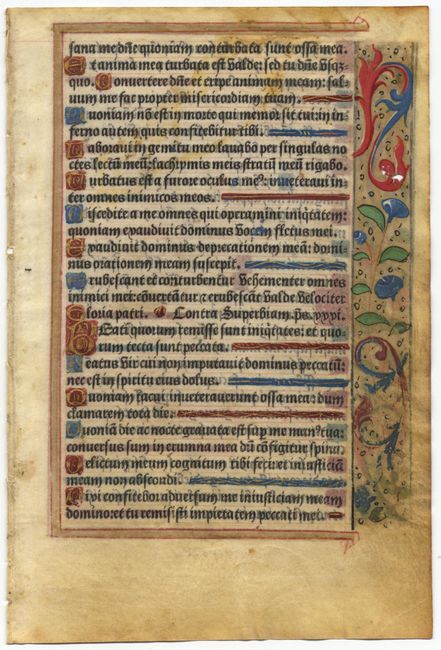 sana me dñe quoniam conturbata sunt ossa mea.
Et anima mea turbata est valde: sed tu dñe usq3
quo. Convertere dñe et eripe animam meam: sal-
vum me fac propter misericordiam tuam.
Quoniam nõ est in morte qui memor sit tui: in in
ferno autem quis confitebitur tibi.
Laboravi in gemitu meo lavabo per singulas no
ctes lectũ meũ: lachrymis meis stratũ meũ rigabo.
Turbatus est a furore oculus me9: inveteravi in
ter omnes inimicos meos.
Discedite a me omnes qui operamini iniqtatem:
quoniam exaudivit dominus vocem fletus mei.
Exaudivit dominus deprecationem meã: domi-
nus orationem meam suscepit.
Erubescant et conturbentur vehementer omnes
inimici mei: convertãtur et erubescãt valde velociter
Gloria patri. Contra Superbiam. ps. xxxi.
BEati quorum remisse sunt iniqtates: et quo-
rum tecta sunt peccata.
Beatus vir cui non imputavit dominus peccatũ:
nec est in spiritu eius dolus.
Quoniam tacui inveteraverunt ossa mea: dum
clamarem tota die.
Quoniã die ac nocte gravata est sup me man9 tua:
conversus sum in erumna mea dũ cõfigitur spina
Delictum meum cognitum tibi feci: et iniusticiã
meam non abscondi.
Dixi confitebor adversum me iniusticiam meam
domino: et tu remisisti impietatem peccati mei.